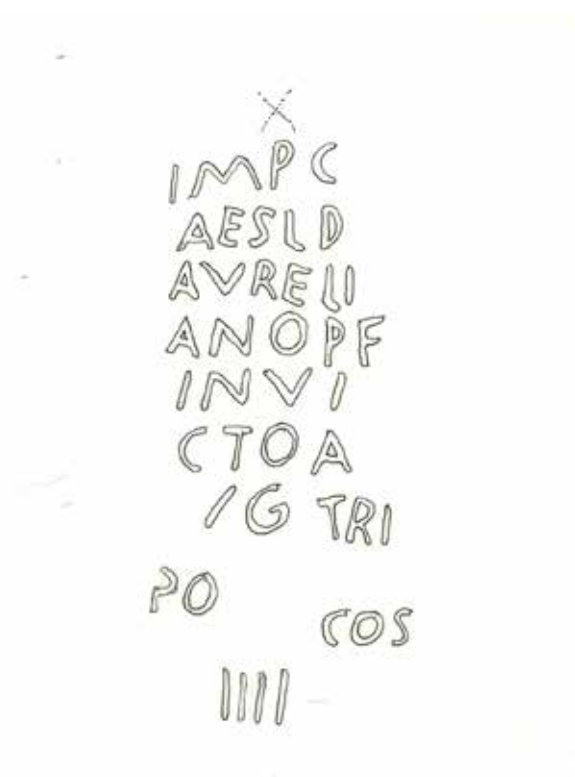 X
IMPC
AESLD
AVRELI
ANOPF
INVI
CTOA
/G TRI
PO
COS
IIII